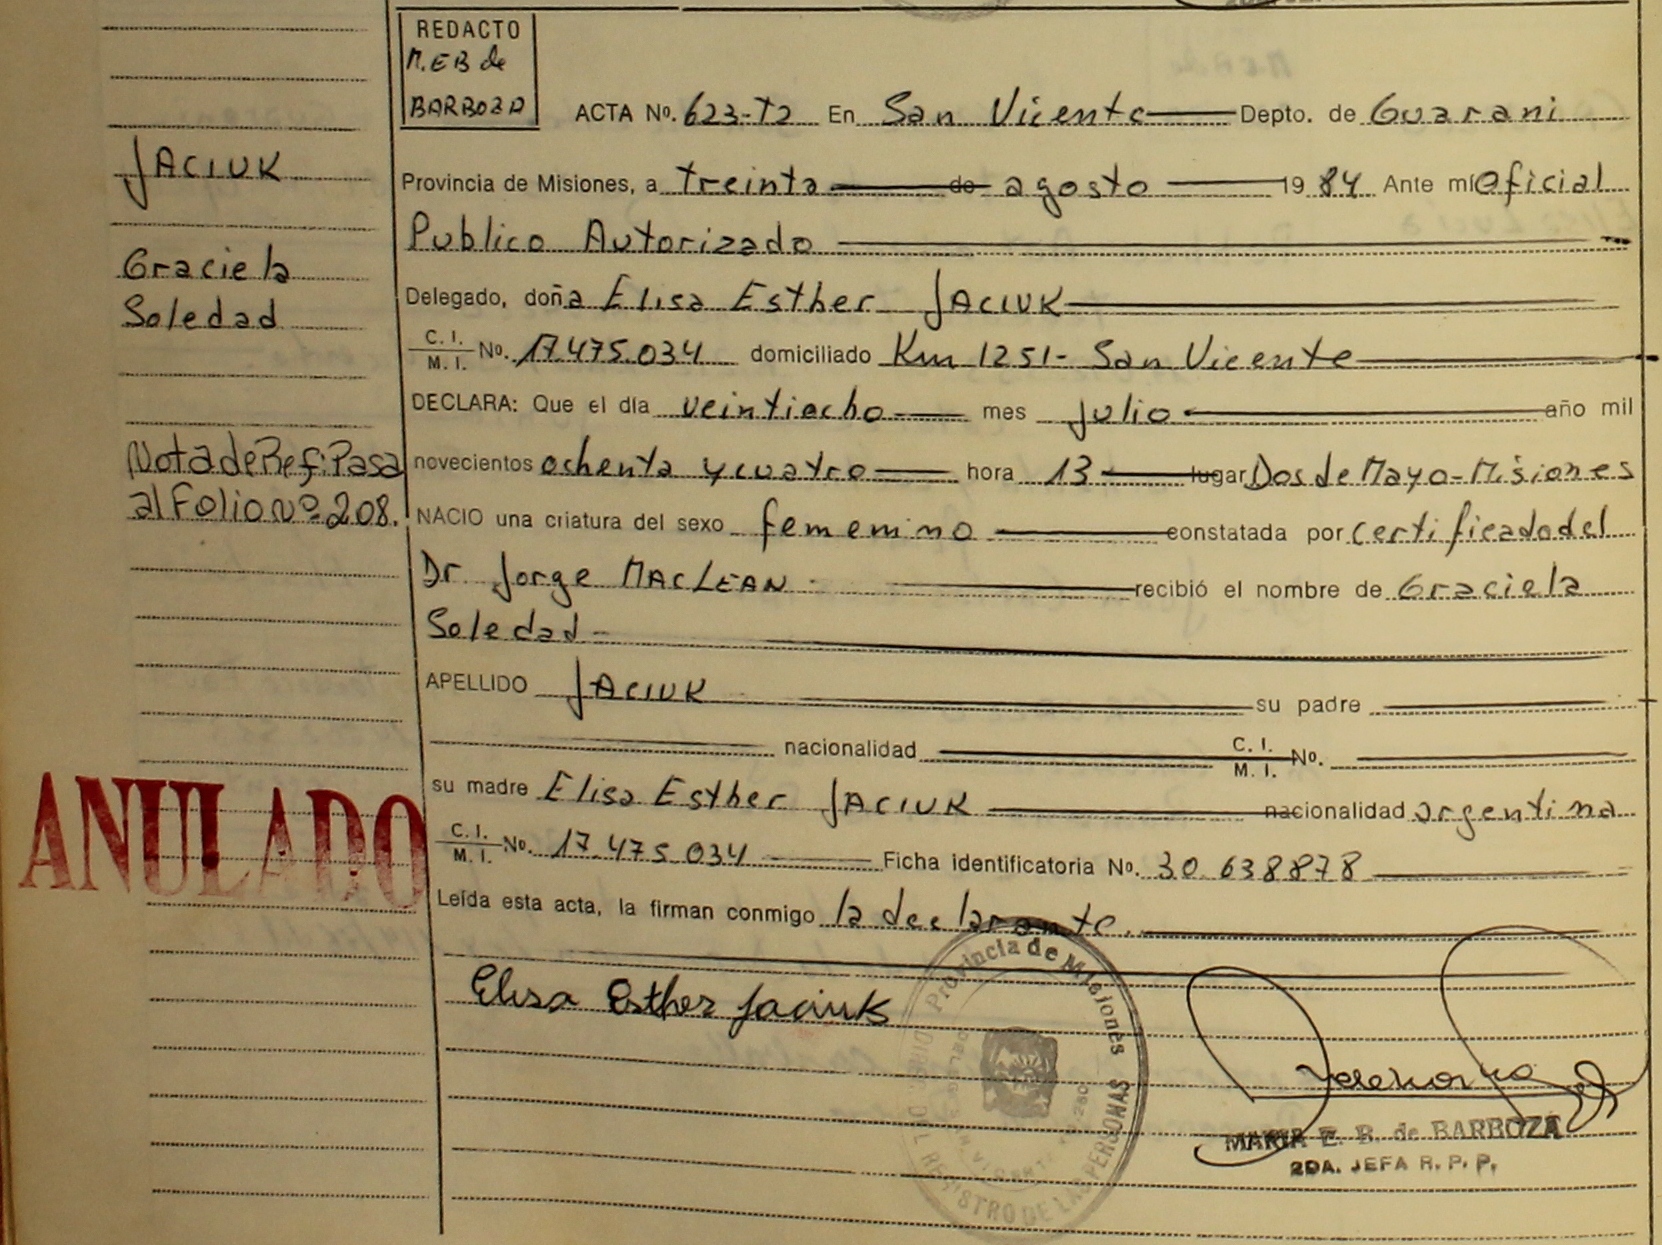 REDACTO
M.EB de
BARBOZA
ACTA Nº. 623-T2 En San Vicente Depto. de Guarani
JACIUK
Provincia de Misiones, a treinta de agosto 1984 Ante mí Oficial
Publico Autorizado
Graciela
Soledad
Delegado, doña Elisa Esther JACIUK
C. I.
M. I. Nº. 17.475.034 domiciliado Km 1251- San Vicente
DECLARA: Que el día veintiocho mes julio año mil
Nota de Ref: Pasa
al Folio Nº 208.
novecientos ochenta y cuatro hora 13 lugar Dos de Mayo-Misiones
NACIO una criatura del sexo femenino constatada por certificado del
Dr. Jorge MACLEAN recibió el nombre de Graciela
Soledad-
APELLIDO JACIUK su padre
nacionalidad C. I.
M. I. Nº.
ANULADO
su madre Elisa Esther JACIUK nacionalidad argentina
C. I.
M. I. Nº. 17.475.034 Ficha identificatoria Nº. 30 638878
Leída esta acta, la firman conmigo la declarante.
Elisa Esther Jaciuk
Provincia de Misiones
REGISTRO DE LAS PERSONAS
MARIA E. B. de BARBOZA
2DA. JEFA R. P. P.